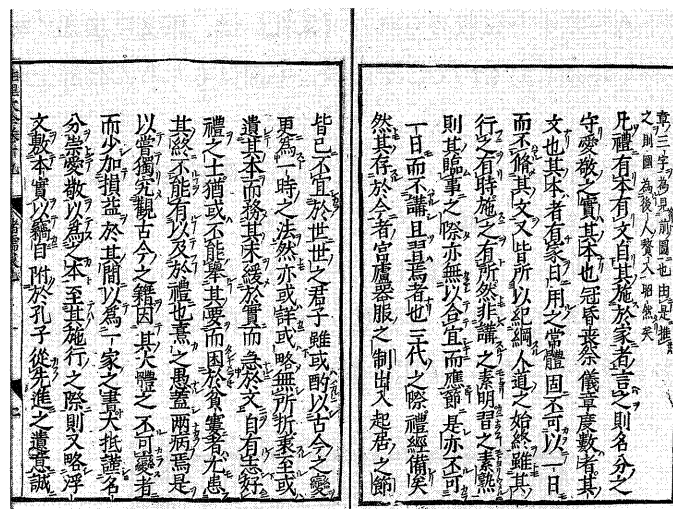 章三字為見前圖也由是推
之則圖為後人贅入昭然矣
凡禮有本有文自其施於家者言之則名分之
守愛敬之實其本也冠昏喪祭儀章度數者其
文也其本者有家日用之常體固不可以一日
而不脩其文又皆所以紀綱人道之始終雖其
行之有時施之有所然非講之素明習之素熟
則其臨事之際亦無以合宜而應節是亦不可
一日而不講且習焉者也三代之際禮經備矣
然其存於今者宮廬器服之制出入起居之節
皆已不宜於世世之君子雖或酌以古今之變
更為一時之法然亦或詳或略無所折衷至或
遺其本而務其末緩於實而急於文自有志好
禮之士猶或不能舉其要而困於貧窶者尤患
其終不能有以及於禮也熹之愚蓋兩病焉是
以嘗獨究觀古今之籍因其大體之不可變者
而少加損益於其間以為一家之書大抵謹名
分崇愛敬以為之本至其施行之際則又略浮
文敷本實以竊自附於孔子從先進之遺意誠